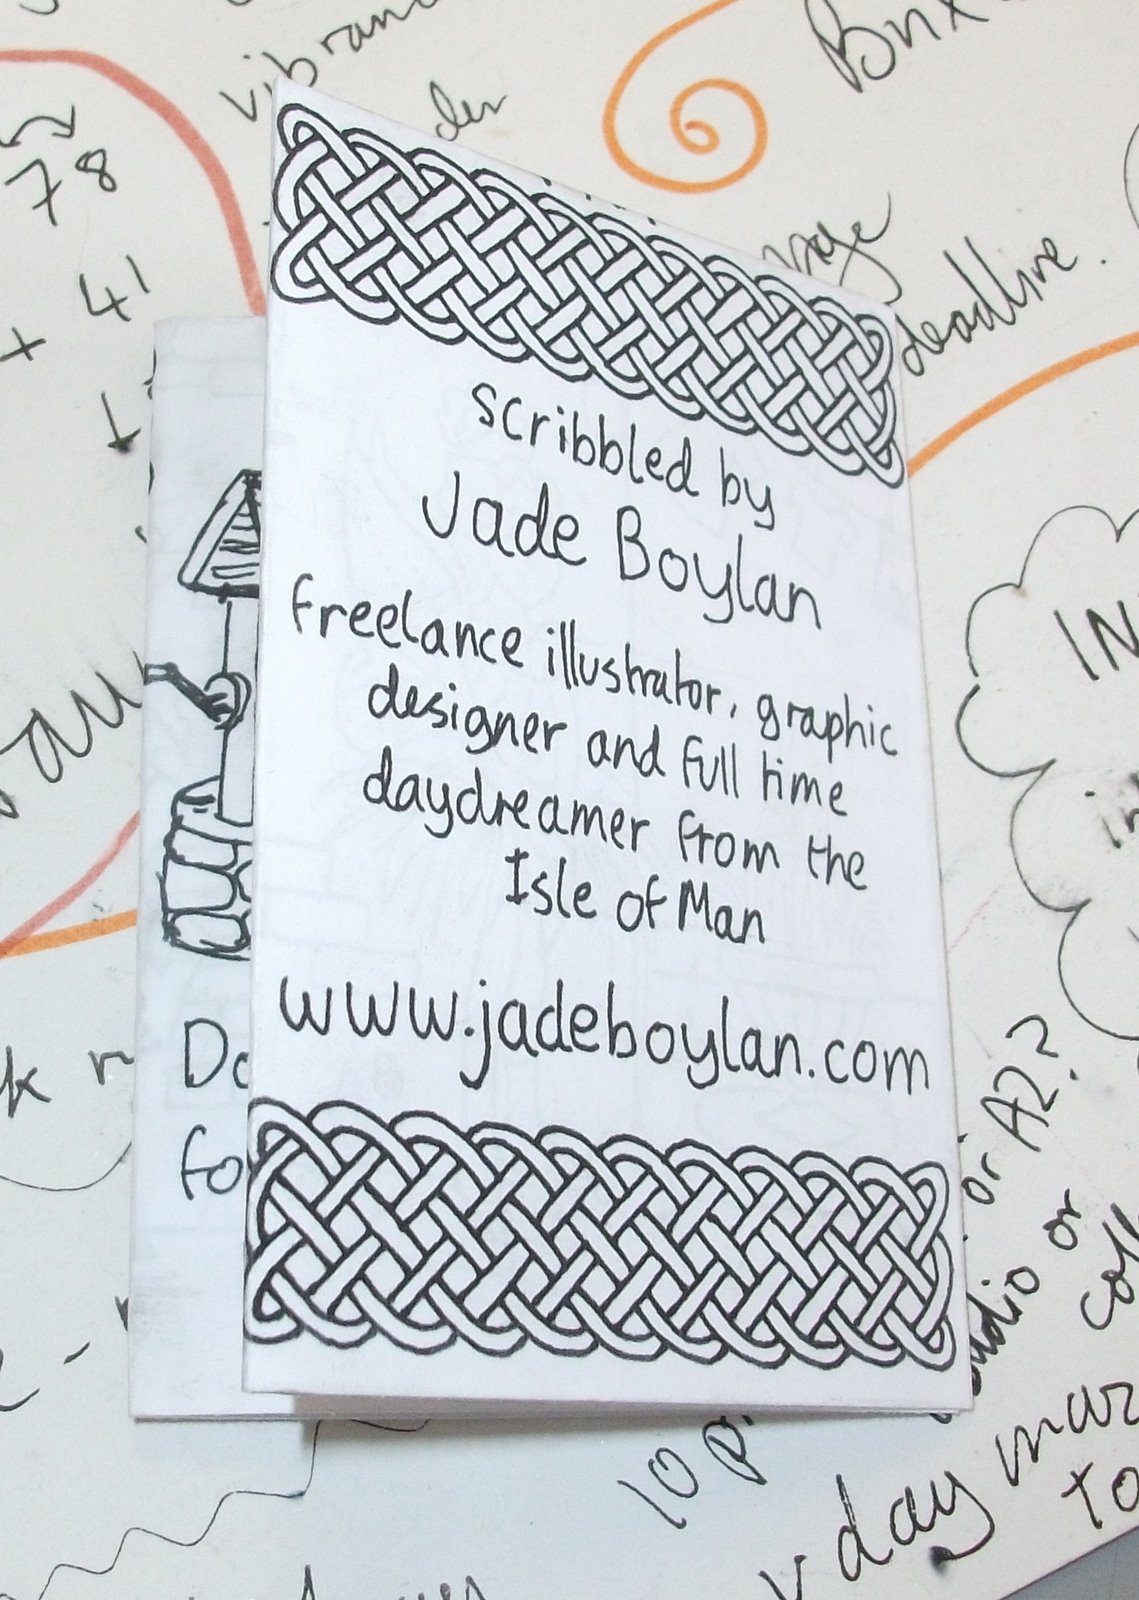 scribbled by
Jade Boylan
freelance illustrator, graphic
designer and full time
daydreamer from the
Isle of Man
www.jadeboylan.com
Do
fo
78
+ 41
deadline.
IN
or A2?
or
10
day
to